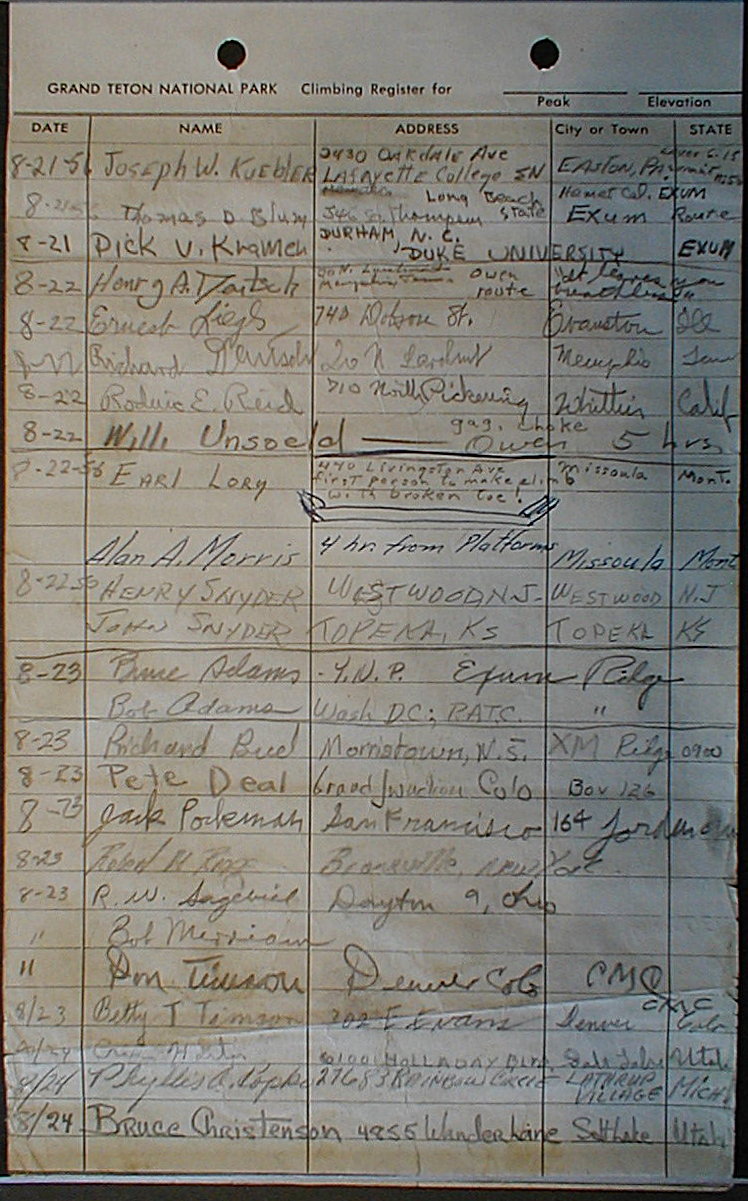 GRAND TETON NATIONAL PARK Climbing Register for
Peak Elevation
DATE NAME ADDRESS City or Town STATE
8-21-56 Joseph W. Kuebler 2430 Oakdale Ave EASTON, PA
LAfAyette College
8-21-56 Thomas D. Blum Long Beach State Hemet Cal. EXUM
Thompson Exum Route
8-21 Dick V. Kramer DURHAM N.C. DUKE UNIVERSITY EXUM
8-22 Henry A. Owen route "It leaves you breathless"
8-22 Ernest 740 Dobson St. Evanston Ill
8-22 Richard 20 N Memphis Tenn
8-22 Roderic E. Reid 710 North Pickering Whittier Calif
8-22 Willi Unsoeld gag, choke Owen 5 hrs
8-22-56 EARl LORY 440 Livingston Ave Missoula Mont.
first person to make climb
with broken toe!
Alan A. Morris 4 hr. from Platforms Missoula Mont
8-22-56 HENRY SNYDER WESTWOOD N.J- WESTWOOD N.J
JOHN SNYDER TOPEKA, KS TOPEKA KS
8-23 Bruce Adams - Y.N.P. Exum Ridge
Bob Adams Wash DC; PATC. "
8-23 Richard Morristown, N.J. XM Ridge 0900
8-23 Pete Deal Grand Junction Colo Box 126
8-23 Jack San Francisco 164
8-23 Robert New York
8-23 R. W. Dayton 9, Ohio
" Bob Merriam
" Don Timson Denver Colo CMC
8/23 Betty T Timson 202 E Evans Denver CMC Colo
HOLLADAY Blvd. Salt Lake Utah
8/24 Phyllis A. 27683 RAINBOW CIRCLE LATHRUP VILLAGE MICH
8/24 Bruce Christenson 4855 Wander Lane Salt Lake Utah